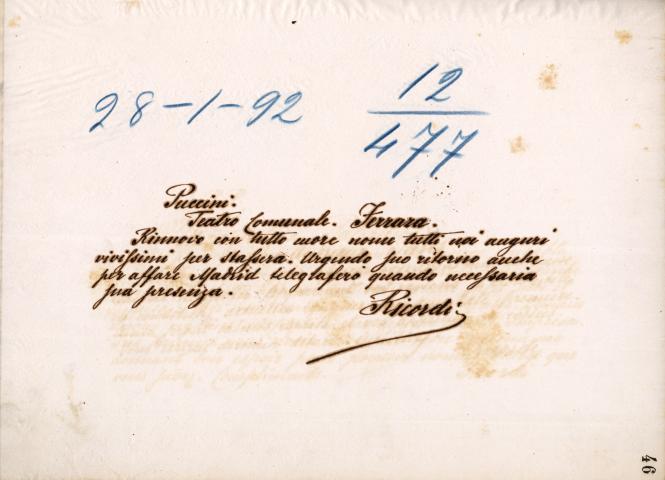 28-1-92
12
477
Puccini.
Teatro Comunale. Ferrara.
Rinnovo con tutto cuore nome tutti noi auguri
vivissimi per stassera. Urgendo suo ritorno anche
per affare Madrid telegraferò quando necessaria
sua presenza.
Ricordi
46